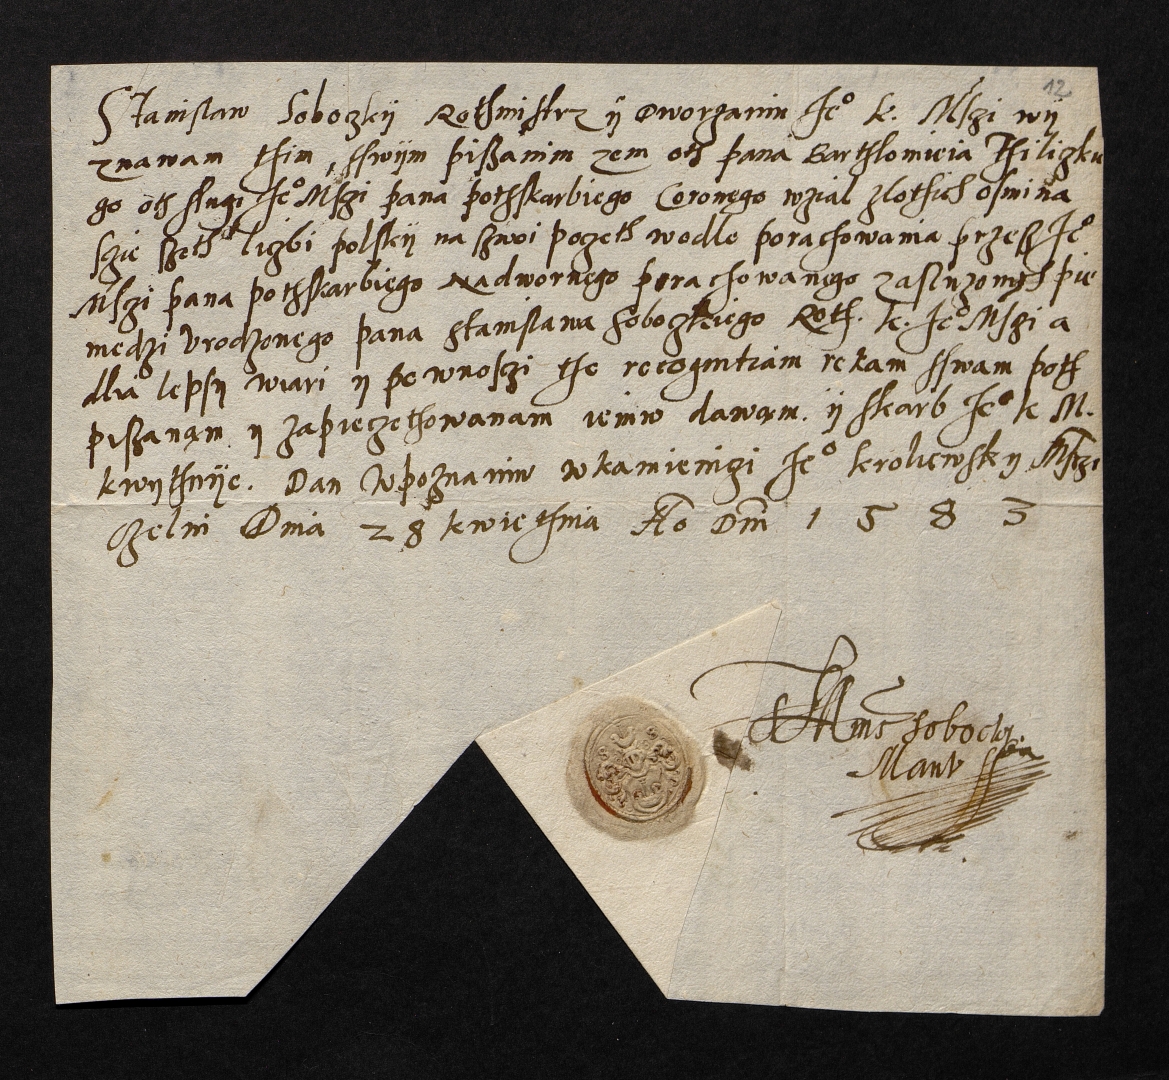 12
Stanislaw Soboczkij Rothmistrz ÿ Dworzanin Je° k. Mſzi wÿ
znawam thim ſſwijm piſzanim zem oth pana Barthlomieia Thiliczkie
go oth ſlugi Je° Mſzi pana pothſkarbiego Coronego wzial zlothich oſmi na
ſzie ſzeth liczbi polſkij na ſzwoi poczeth wodle porachowania przeſz Je°
Mſzi pana pothſkarbiego Nadwornego porachowanego zasluzonych pie
niedzi Vrodzonego pana Stanislawa Soboczkiego Roth. k. Je° Mſzi a
dlia lepſzÿ wiari ÿ pewnoſczi the recognitiam rekam ſſwam poth
piſzanąm ÿ zapieczethowanam iemw dawąm. ÿ ſkarb Je° k M.
kwythuije. Dan Wpoznaniw wkamienigi Je° kroliewſkÿ Mſzi
czelni Dnia 28 kwiethnia A͞o Dm͞ 1583
Sobocky
Manu